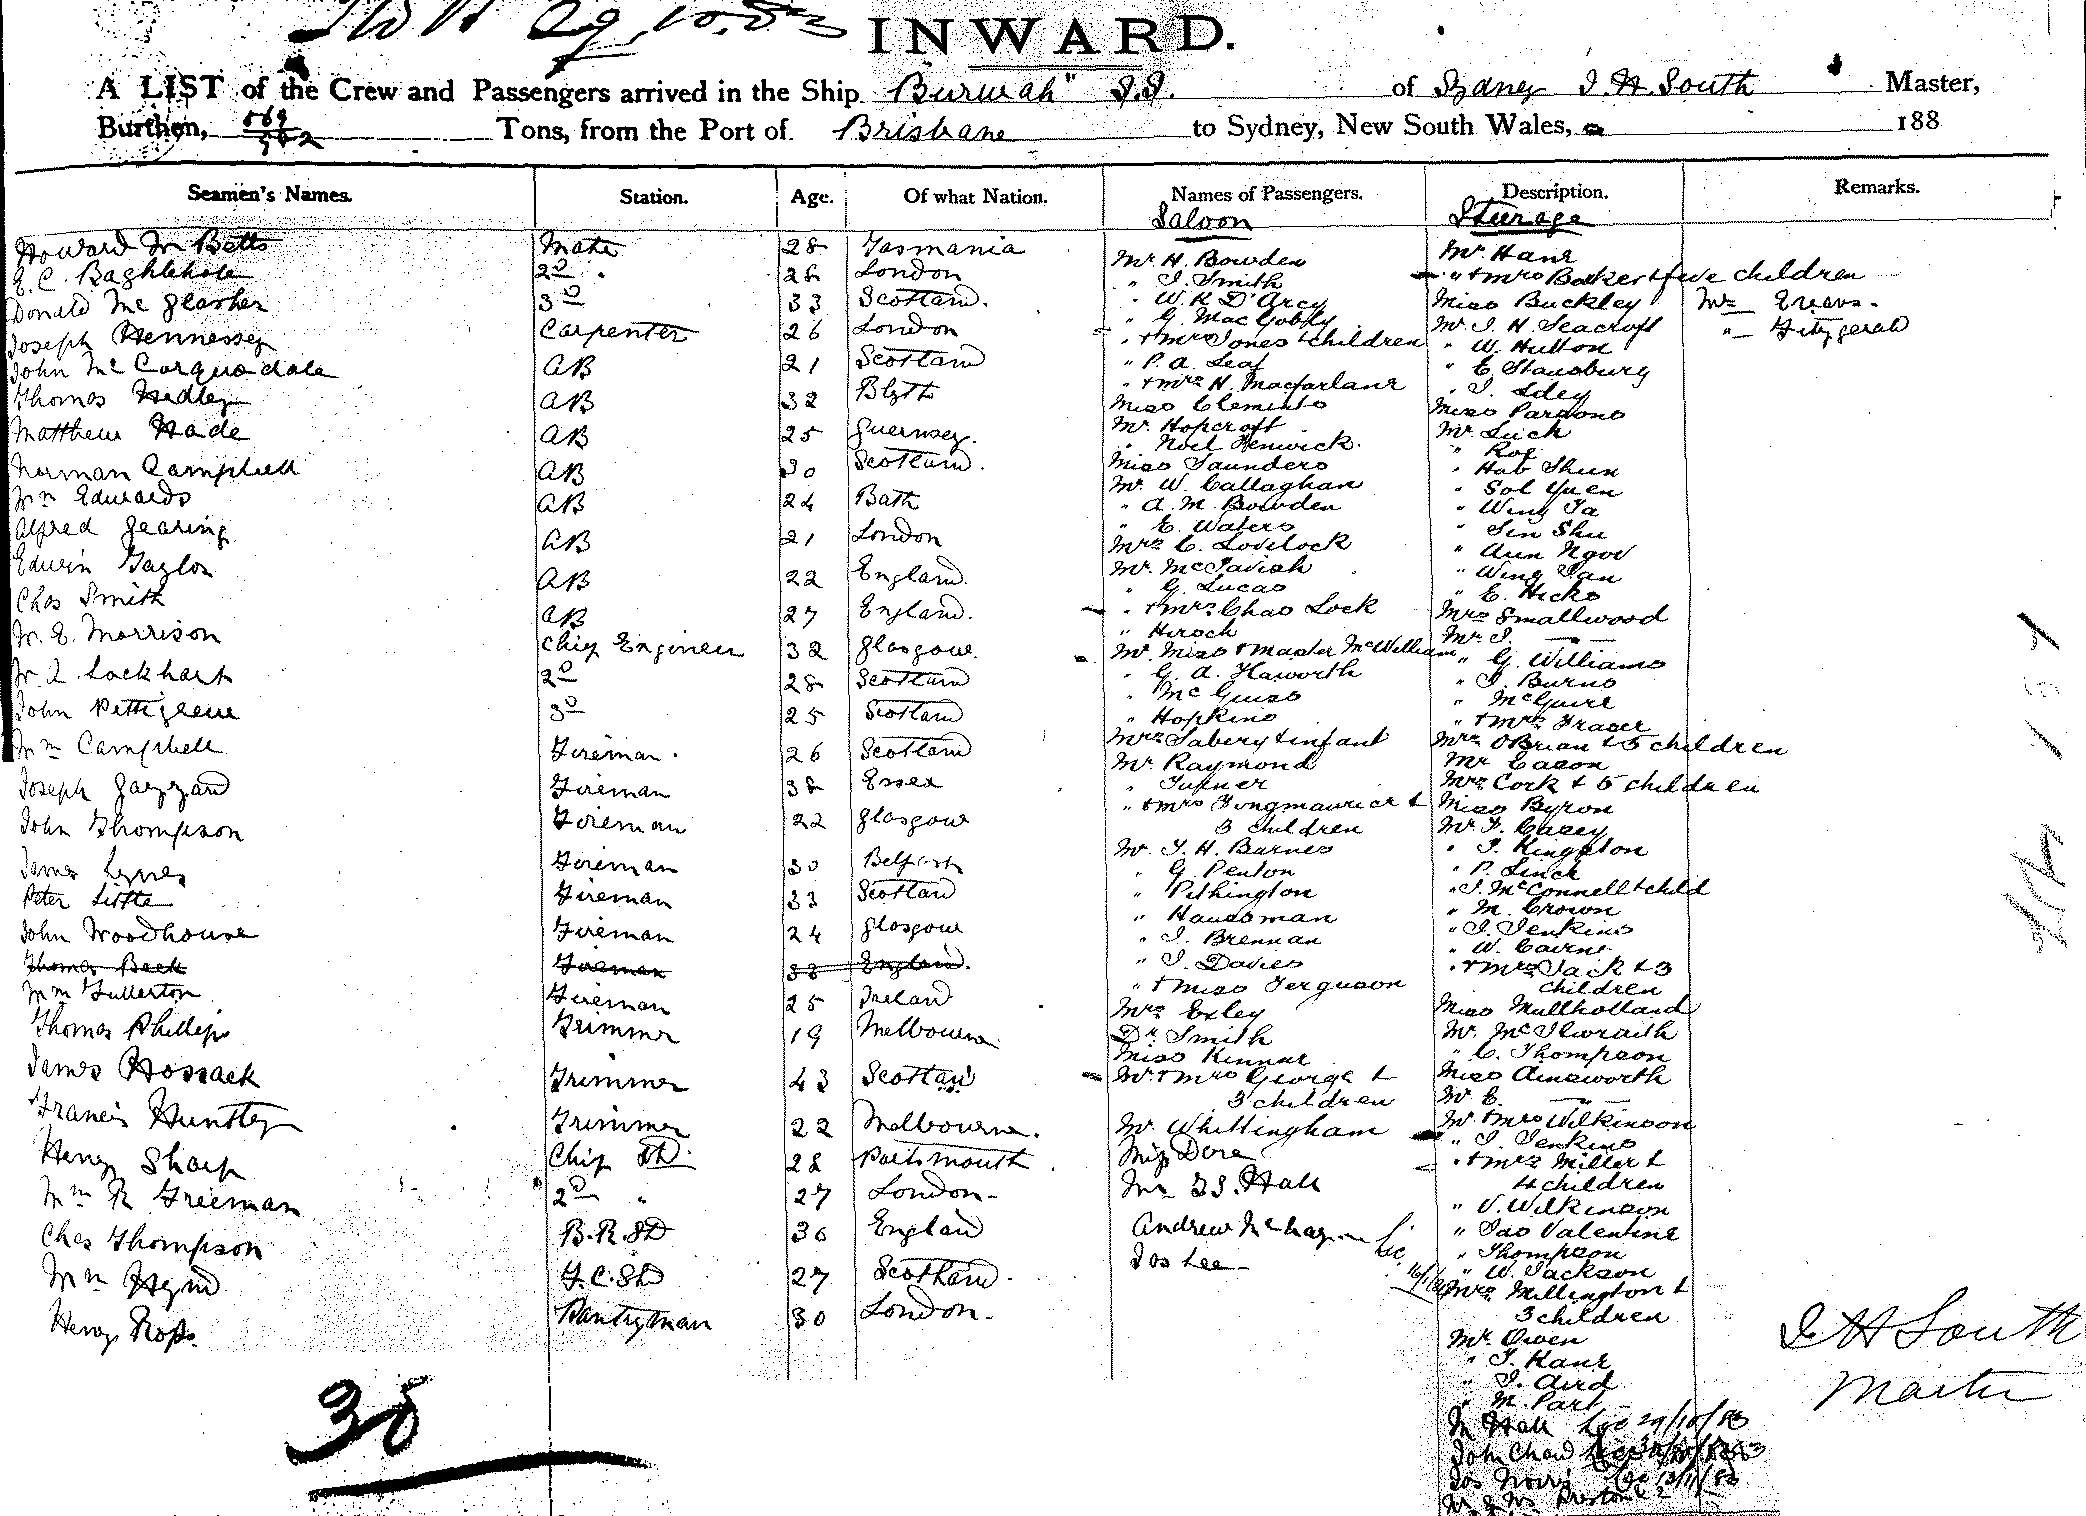 INWARD.
A LIST of the Crew and Passengers arrived in the Ship "Burwah" S.S. of Sydney J. H. South Master,
Burthen, 569 Tons, from the Port of Brisbane to Sydney, New South Wales, 188
Seamen's Names. Station. Age. Of what Nation. Names of Passengers. Description. Remarks.
Saloon Sturage
Howard M Betts Mate 28 Tasmania
E. C. Baghlehole 2D " 26 London
Donald McGlasher 3D 33 Scotland.
Joseph Hennessey Carpenter 26 London
John McCorquodale AB 21 Scotland
Thomas Hedley AB 32 Blyth
Matthew Hade AB 25 Guernsey.
Norman Campbell AB 30 Scotland.
Wm Edwards AB 24 Bath
Alfred Gearing AB 21 London
Edwin Gaylon AB 22 England.
Chas Smith AB 27 England.
W. E. Morrison Chief Engineer 32 Glasgow.
W. L Lockhart 2D 28 Scotland
John Pettigrew 3D 25 Scotland
Wm Campbell Fireman. 26 Scotland
Joseph Gazzard Fireman 38 Essex
John Thompson Fireman 22 Glasgow
James Lynes Fireman 30 Belfast
Peter Little Fireman 33 Scotland
John Woodhouse Fireman 24 Glasgow
Thomas Beck Fireman 33 England.
Wm Fullerton Fireman 25 Ireland
Thomas Phillips Trimmer 19 Melbourne
James Hossack Trimmer 43 Scotland
Francis Huntley Trimmer 22 Melbourne.
Henry Sharp Chief SD. 28 Portsmouth
Wm R Freeman 2D " 27 London
Chas Thompson B.R.SD 36 England
Wm Hynd F.C.SD 27 Scotland.
Henry Ross. Pantryman 30 London.
38
Mr H. Bowden
" J. Smith
" W. K D'Arcy
" G. Mac
" + Mrs Jones + children
" P. A. Leaf
" + Mrs H. Macfarlane
Miss Clements
Mr Hopcroft
" Noel Fenwick.
Miss Saunders
Mr W. Callaghan
" A. M. Bowden
" E. Waters
Mrs C. Lovelock
Mr. McTavish
" G. Lucas
" + Mrs Chas Lock
" Hirsch
Mr. Miss + Master McWilliam
" G. A. Haworth
" McGuiso
" Hopkins
Mrs Sabery + infant
Mr Raymond
" Turner
" + Mrs &
3 children
Mr. J. H. Barnes
" G. Penton
" Pilkington
" Haussman
" J. Brennan
" J. Davies
" + Miss Ferguson
Mrs Exley
Dr. Smith
Miss Kinnar
Mr + Mrs George &
3 children
Mr Whittingham
Miss Dore
Mr Hall
Andrew
Jos Lee
Mr. Hane
" + Mrs Baker + five children
Miss Buckley
Mr. J. H. Seacroft
" W. Hutton
" E. Stansbury
" J. Idey
Miss Parsons
Mr. Luck
" Roe
" Hab Shun
" Sol Yuen
" Wing Ta
" Sin Shu
" Aun Ngov
" Wing Tan
" E. Hicks
Mrs Smallwood
Mr. J. —"—
" G. Williams
" J. Burns
" McGuire
" + Mrs Fraser
Mrs O'Brian + 5 children
Mr Cason
Mrs Cork + 5 children
Miss Byron
Mr. F. Casey
" J. Kingston
" P. Linch
" J. McConnell + child
" M. Crown
" J. Jenkins
" W. Cairns
" + Mrs Jack + 3
children
Miss Mullholland
Mr. McIlwraith
" C. Thompson
Miss Ainsworth
Mr E. —"—
Mr + Mrs Wilkinson
" J. Jenkins
" + Mrs Miller &
4 children
" V. Wilkinson
" Jas Valentine
" Thompson
" W. Jackson
Mrs Millington &
3 children
Mr. Owen
" J. Kane
" J. Aird
" M. Part
Hall 29/10/83
John
Jos Norris 13/11/83
Mr Evans.
" Fitzgerald
J H South
Master